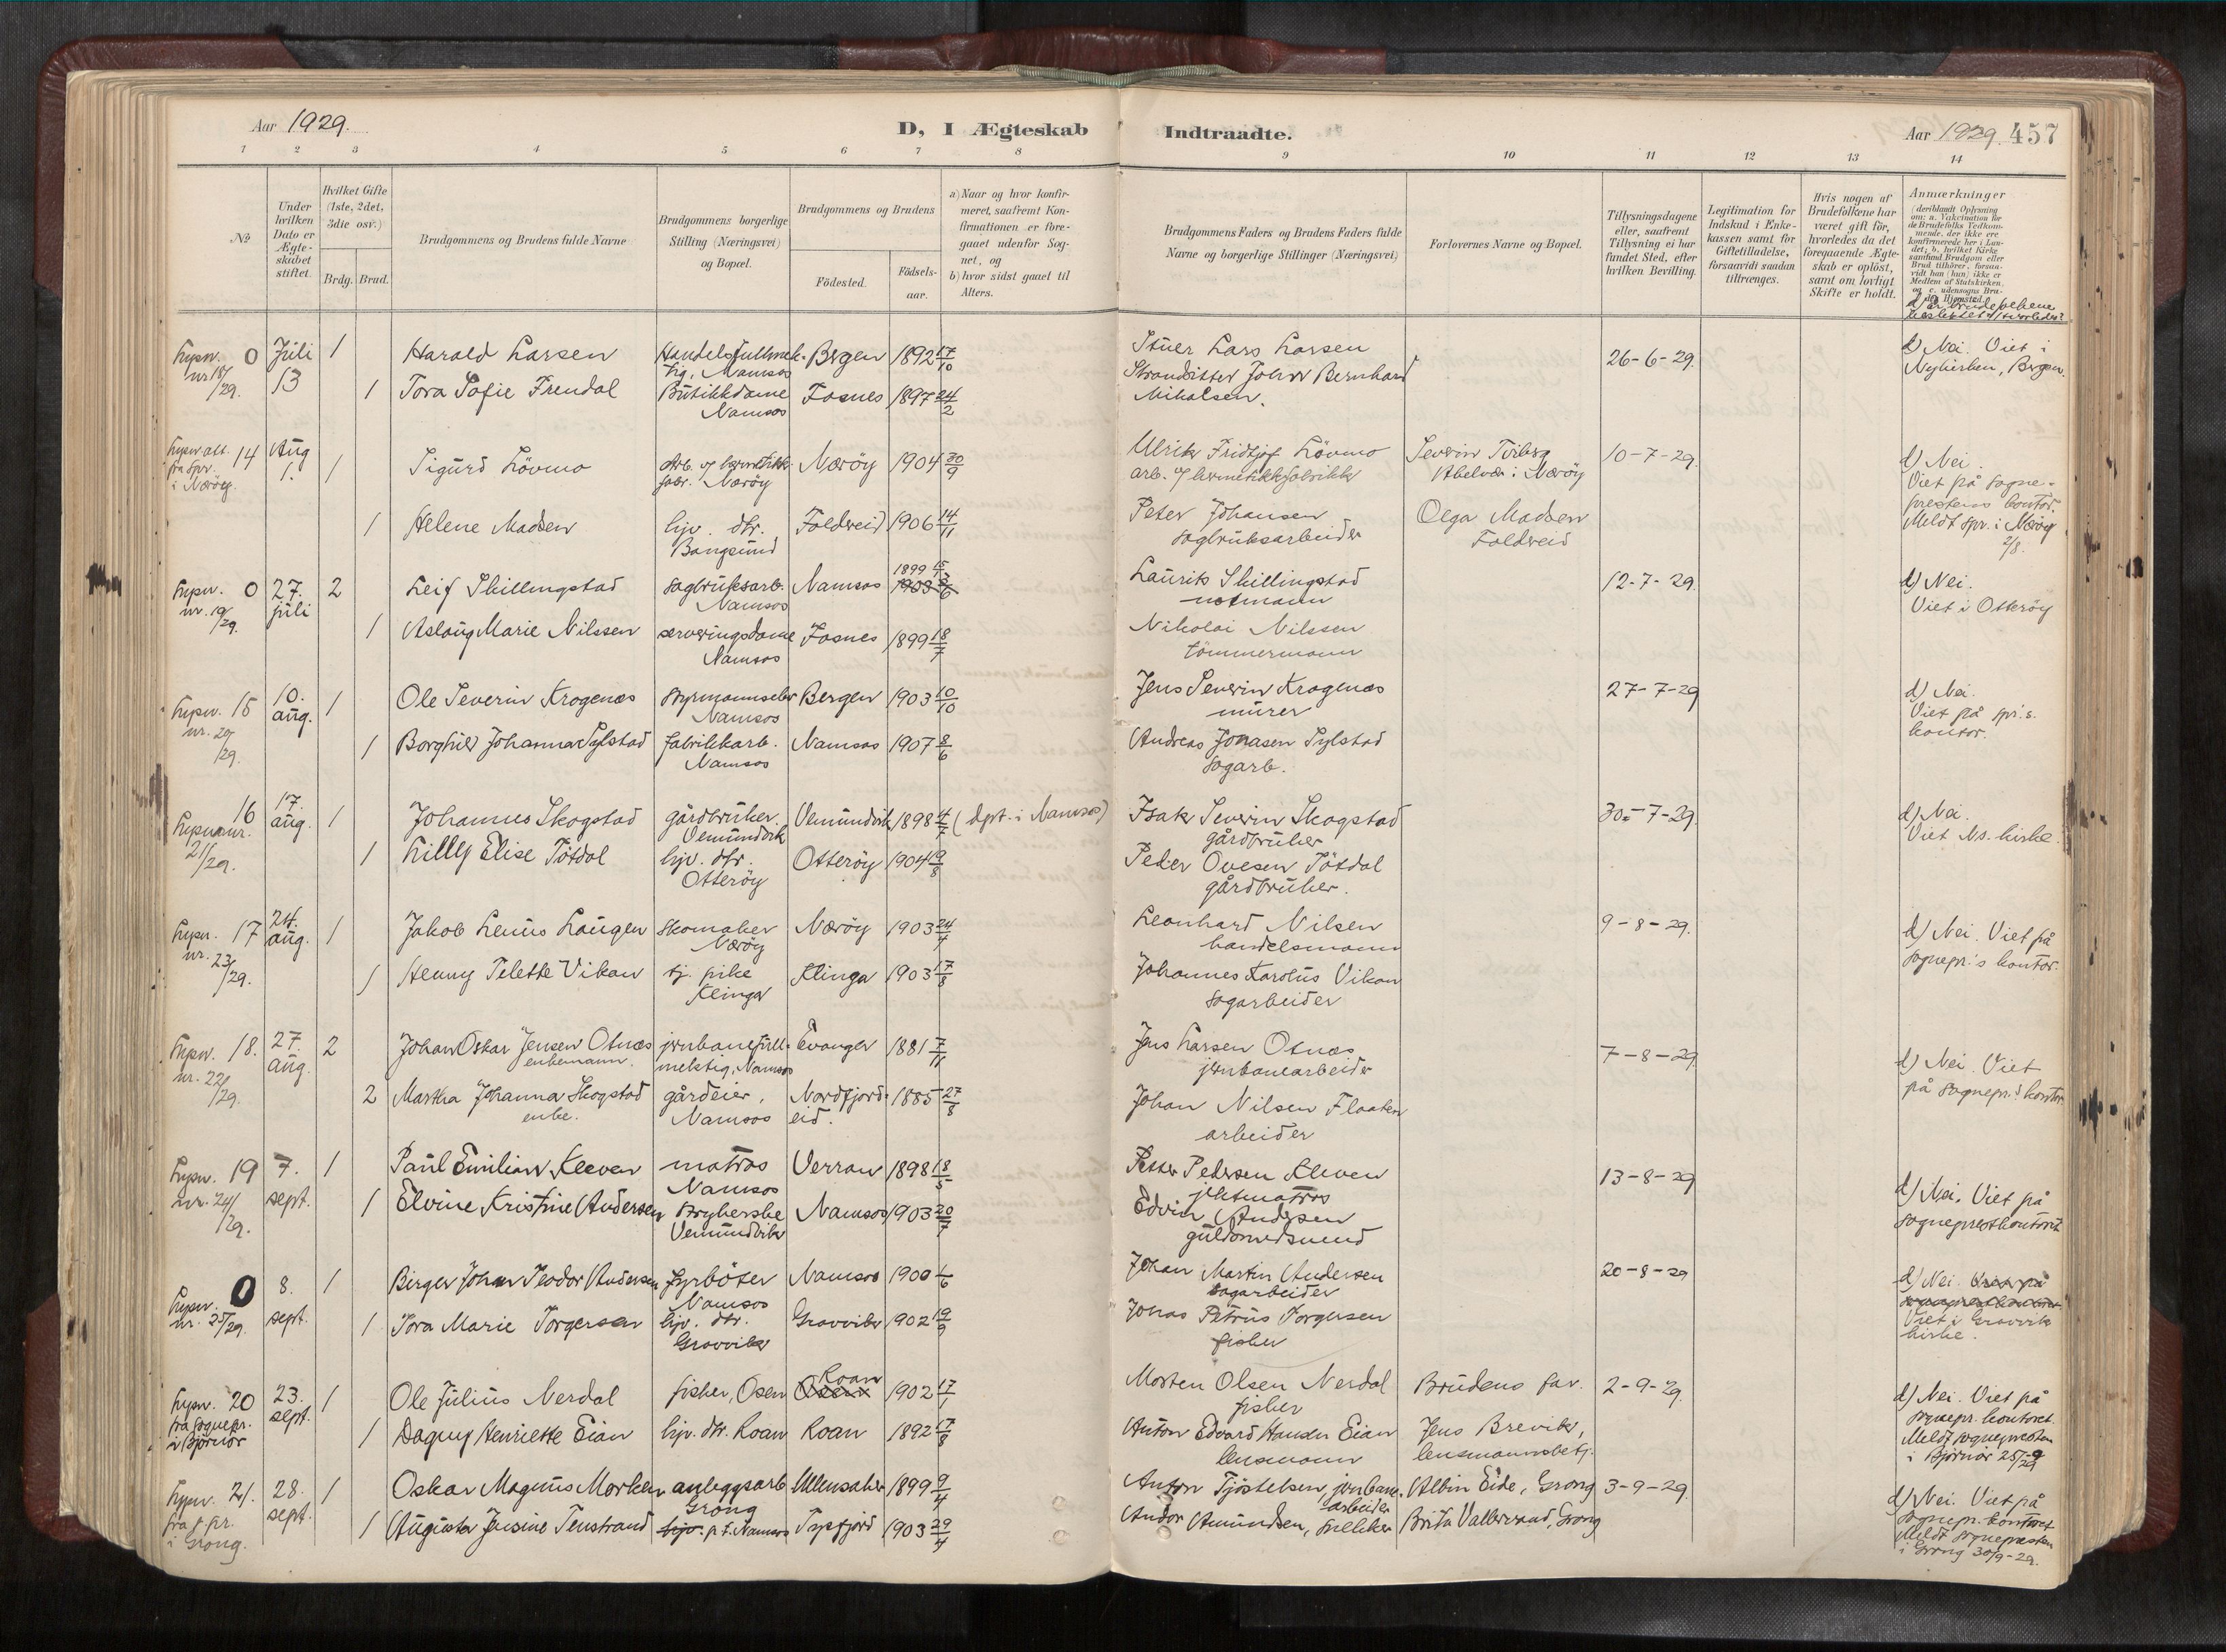 Aar 1929.
D, I Ægteskab Indtraadte.
Aar 1929. 457
1 2 3 4 5 6 7 8 9 10 11 12 13 14
No
Under hvilken Dato er Ægteskabet stiftet.
Hvilket Gifte (1ste, 2det, 3die osv.)
Brdg. Brud.
Brudgommens og Brudens fulde Navne
Brudgommens borgerlige Stilling (Næringsvei) og Bopæl.
Brudgommens og Brudens
Födested. Födsels-aar.
a) Naar og hvor konfirmeret, saafremt Konfirmationen er foregaaet udenfor Sognet, og
b) hvor sidst gaaet til Alters.
Brudgommens Faders og Brudens Faders fulde Navne og borgerlige Stillinger (Næringsvei)
Forlovernes Navne og Bopæl.
Tillysningsdagene eller, saafremt Tillysning ei har fundet Sted, efter hvilken Bevilling.
Legitimation for Indskud i Enkekassen samt for Giftetilladelse, forsaavidt saadan tiltrænges.
Hvis nogen af Brudefolkene har været gift för, hvorledes da det foregaaende Ægteskab er oplöst, samt om lovligt Skifte er holdt.
Anmærkninger
(deriblandt Oplysning om: a. Vakcination for de Brudefolks Vedkommende, der ikke ere konfirmerede her i Landet; b. hvilket Kirkesamfund Brudgom eller Brud tilhörer, forsaavidt han (hun) ikke er Medlem af Statskirken, og c. udensogns Bruds Hjemsted.)
0 Juli 13 1 Harald Larsen Handelsfullmek-tig, Namsos Bergen 1892 17/10 Lars Larsen 26-6-29. d) Nei. Viet i Nykirken, Bergen.
1 Tora Sofie Frendal Butikkdame Namsos Fosnes 1897 24/2 Strandsitter Johan Bernhard Mikalsen.
fra spr. i Næröy. 14 Aug 1. 1 Sigurd Lövmo Arb. hermetikkfabr. Næröy Næröy 1904 30/9 Ulrik Fridtjof Lövmo arb. hermetikkfabrikk Severin Abelvær i Næröy 10-7-29. d) Nei. Viet på sogneprestens kontor. Meldt spr. i Næröy 2/8.
1 Helene Madsen hjv. dtr. Bangsund Foldereid 1906 14/11 Peter Johansen sagbruksarbeider Olga Madsen Foldereid
nr. 19/29. 0 27. juli 2 Leif Skillingstad sagbruksarb. Namsos Namsos 1899 1903 Laurits Skillingstad notmann 12-7-29. d) Nei. Viet i Otteröy
1 Aslaug Marie Nilssen serveringsdame Namsos Fosnes 1899 18/7 Nikolai Nilssen tömmermann
nr. 20/29. 15 10. aug. 1 Ole Severin Krogenæs Styrmannselev Namsos Bergen 1903 10/10 Jens Severin Krogenæs murer 27-7-29 d) Nei. Viet på spr.'s. kontor.
1 Borghild Johanna Sylstad fabrikkarb. Namsos Namsos 1907 8/6 Andreas Jonasen Sylstad Sagarb.
nr. 21/29. 16 17. aug. 1 Johannes Skogstad gårdbruker. Vemundvik Vemundvik 1898 4/7 (dpt. i Namsos) Isak Severin Skogstad gårdbruker 30.-7-29. d) Nei. Viet Ns. kirke.
1 Lilly Elise Tötdal hjv. dtr. Otteröy Otteröy 1904 9/8 Peder Ovesen Tötdal gårdbruker.
nr. 23/29. 17 24. aug. 1 Jakob Lenus Laugen Skomaker Næröy Næröy 1903 24/4 Leonhard Nilsen handelsmann 9-8-29. d) Nei. Viet på sognepr.'s kontor.
1 Henny Pelette Vikan tj. pike Klinga Klinga 1903 17/8 Johannes Karolus Vikan Sagarbeider
nr. 22/29. 18. 27. aug. 2 Johan Oskar Jensen Otnæs enkemann. jernbanefull-mektig, Namsos Evanger 1881 7/11 Jens Larsen Otnæs jernbanearbeider 7-8-29 d) Nei. Viet på sognepr.s kontor.
2 Martha Johanna Skogstad enke. gårdeier, Namsos Nordfjord-eid. 1885 27/8 Johan Nilsen Flaaten arbeider
nr. 24/29. 19 7. sept. 1 Paul Emilian Kleven matros Namsos Verran 1898 18/5 Petter Pedersen Kleven jektmatros 13-8-29 d) Nei. Viet på sogneprestkontoret
1 Elvine Kristine Andersen Strykerske Vemundvik Namsos 1903 20/7 Edvin Andersen gulsmedsvend
nr. 25/29. 0 8. sept. 1 Birger Johan Teodor Andersen fyrböter Namsos Namsos 1900 1/6 Johan Martin Andersen Sagarbeider 20-8-29 d) Nei. Viet på sogneprestkontoret Viet i Gravvik kirke.
1 Tora Marie Torgersen hjv. dtr. Gravvik Gravvik 1902 19/9 Johas Petrus Torgersen fisker
fra sognepr. i Björnör 20 23. sept. 1 Ole Julius Nerdal fisker, Osen Osen Roan 1902 17/1 Morten Olsen Nerdal fisker Brudens far. 2-9-29. d) Nei. Viet på sognepr. kontoret. Meldt sognepresten i Björnör 25/9 29
1 Dagny Henriette Eian hjv. dtr. Roan Roan 1892 17/8 Anton Edvard Hansen Eian lensmann Jens Brevik, lensmannsbetj.
fra spr. i Grong. 21. 28. sept. 1 Oskar Magnus Morken anleggsarb Grong Ullensaker 1899 9/4 Anton Tjöstelsen, jernbane-arbeider Albin Eide, Grong 3-9-29. d) Nei. Viet på sognepr. kontoret Meldt sognepresten i Grong 30/9-29.
1 Augusta Tenstrand p.t. Namsos 1903 29/4 Andor Amundsen, Brita Grong